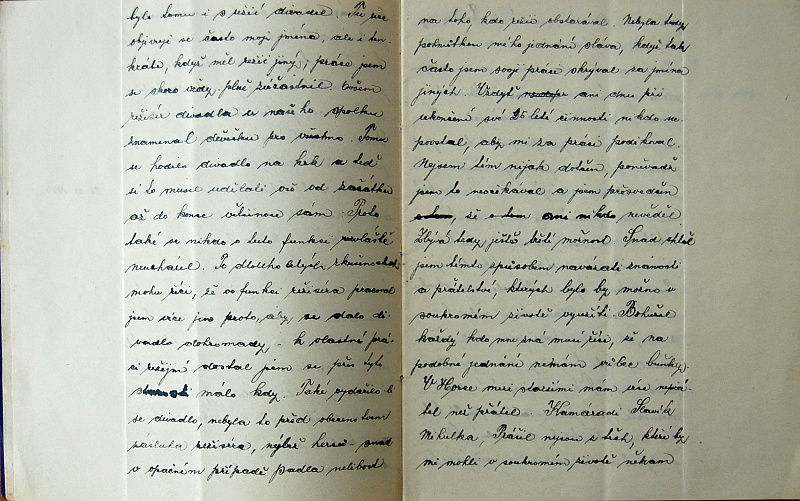 bylo tomu i s režií divadel. Tu sice
objevuji se často moje jména, ale i ten-
kráte, když měl režii jiný, práce jsem
se skoro vždy plně zúčastnil. Ovšem
režisér divadla u našeho spolku
znamenal děvečku pro všechno. Tomu
se hodilo divadlo na krk a teď
si to musel udělati vše od začátku
až do konce většinou sám. Proto
také se nikdo o tuto funkci zvláště
neucházel. Po dlouholetých zkušenostech
mohu říci, že ve funkci režiséra pracoval
jsem více jen proto, aby se dalo di-
vadlo dohromady - k vlastní prá-
ci režijní dostal jsem se přes tyto
starosti málo kdy. Také vydařilo-li
se divadlo, nebyla to před obecenstvem
zásluha režiséra, nýbrž herců - snad
v opačném případě padla nelibost
na toho, kdo režii obstarával. Nebyla tedy
pohnůtkou mého jednání sláva, když tak
často jsem svoji práci skrýval za jména
jiných. Vždyť ani dnes při
ukončení své 25 leté činnosti nikdo ne-
povstal, aby mi za práci poděkoval.
Nejsem tím nijak dotčen, poněvadž
jsem to neočekával a jsem přesvědčen
, že o tom ani nikdo nevěděl
Zbývá tedy ještě třetí možnost. Snad chtěl
jsem tímto způsobem navázati známosti
a přátelství, kterých bylo by možno v
soukromém životě využíti. Bohužel
každý kdo mne zná musí říci, že na
podobné jednání nemám vůbec buňky.
V Horce mezi staršími mám více nepřá-
tel než přátel. Kamarádi Slavík
Mikulka Prášil nejsou z těch, kteří by
mi mohli v soukromém životě někam